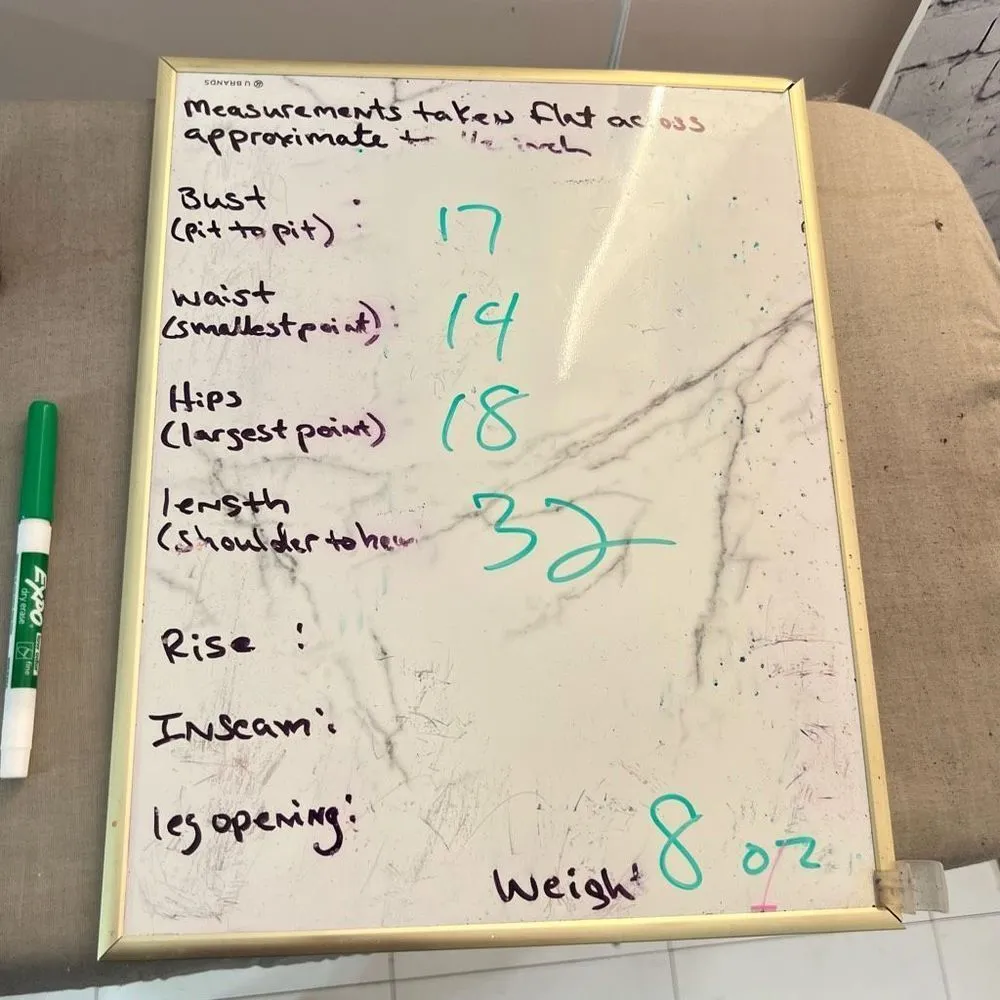 U BRANDS
Measurements taken flat across
approximate + inch
Bust :
(pit to pit) 17
Waist :
(smallest point) 14
Hips
(largest point) 18
length
(shoulder to hem 32
Rise :
Inseam :
leg opening :
Weight 8 oz
EXPO
dry erase
fine